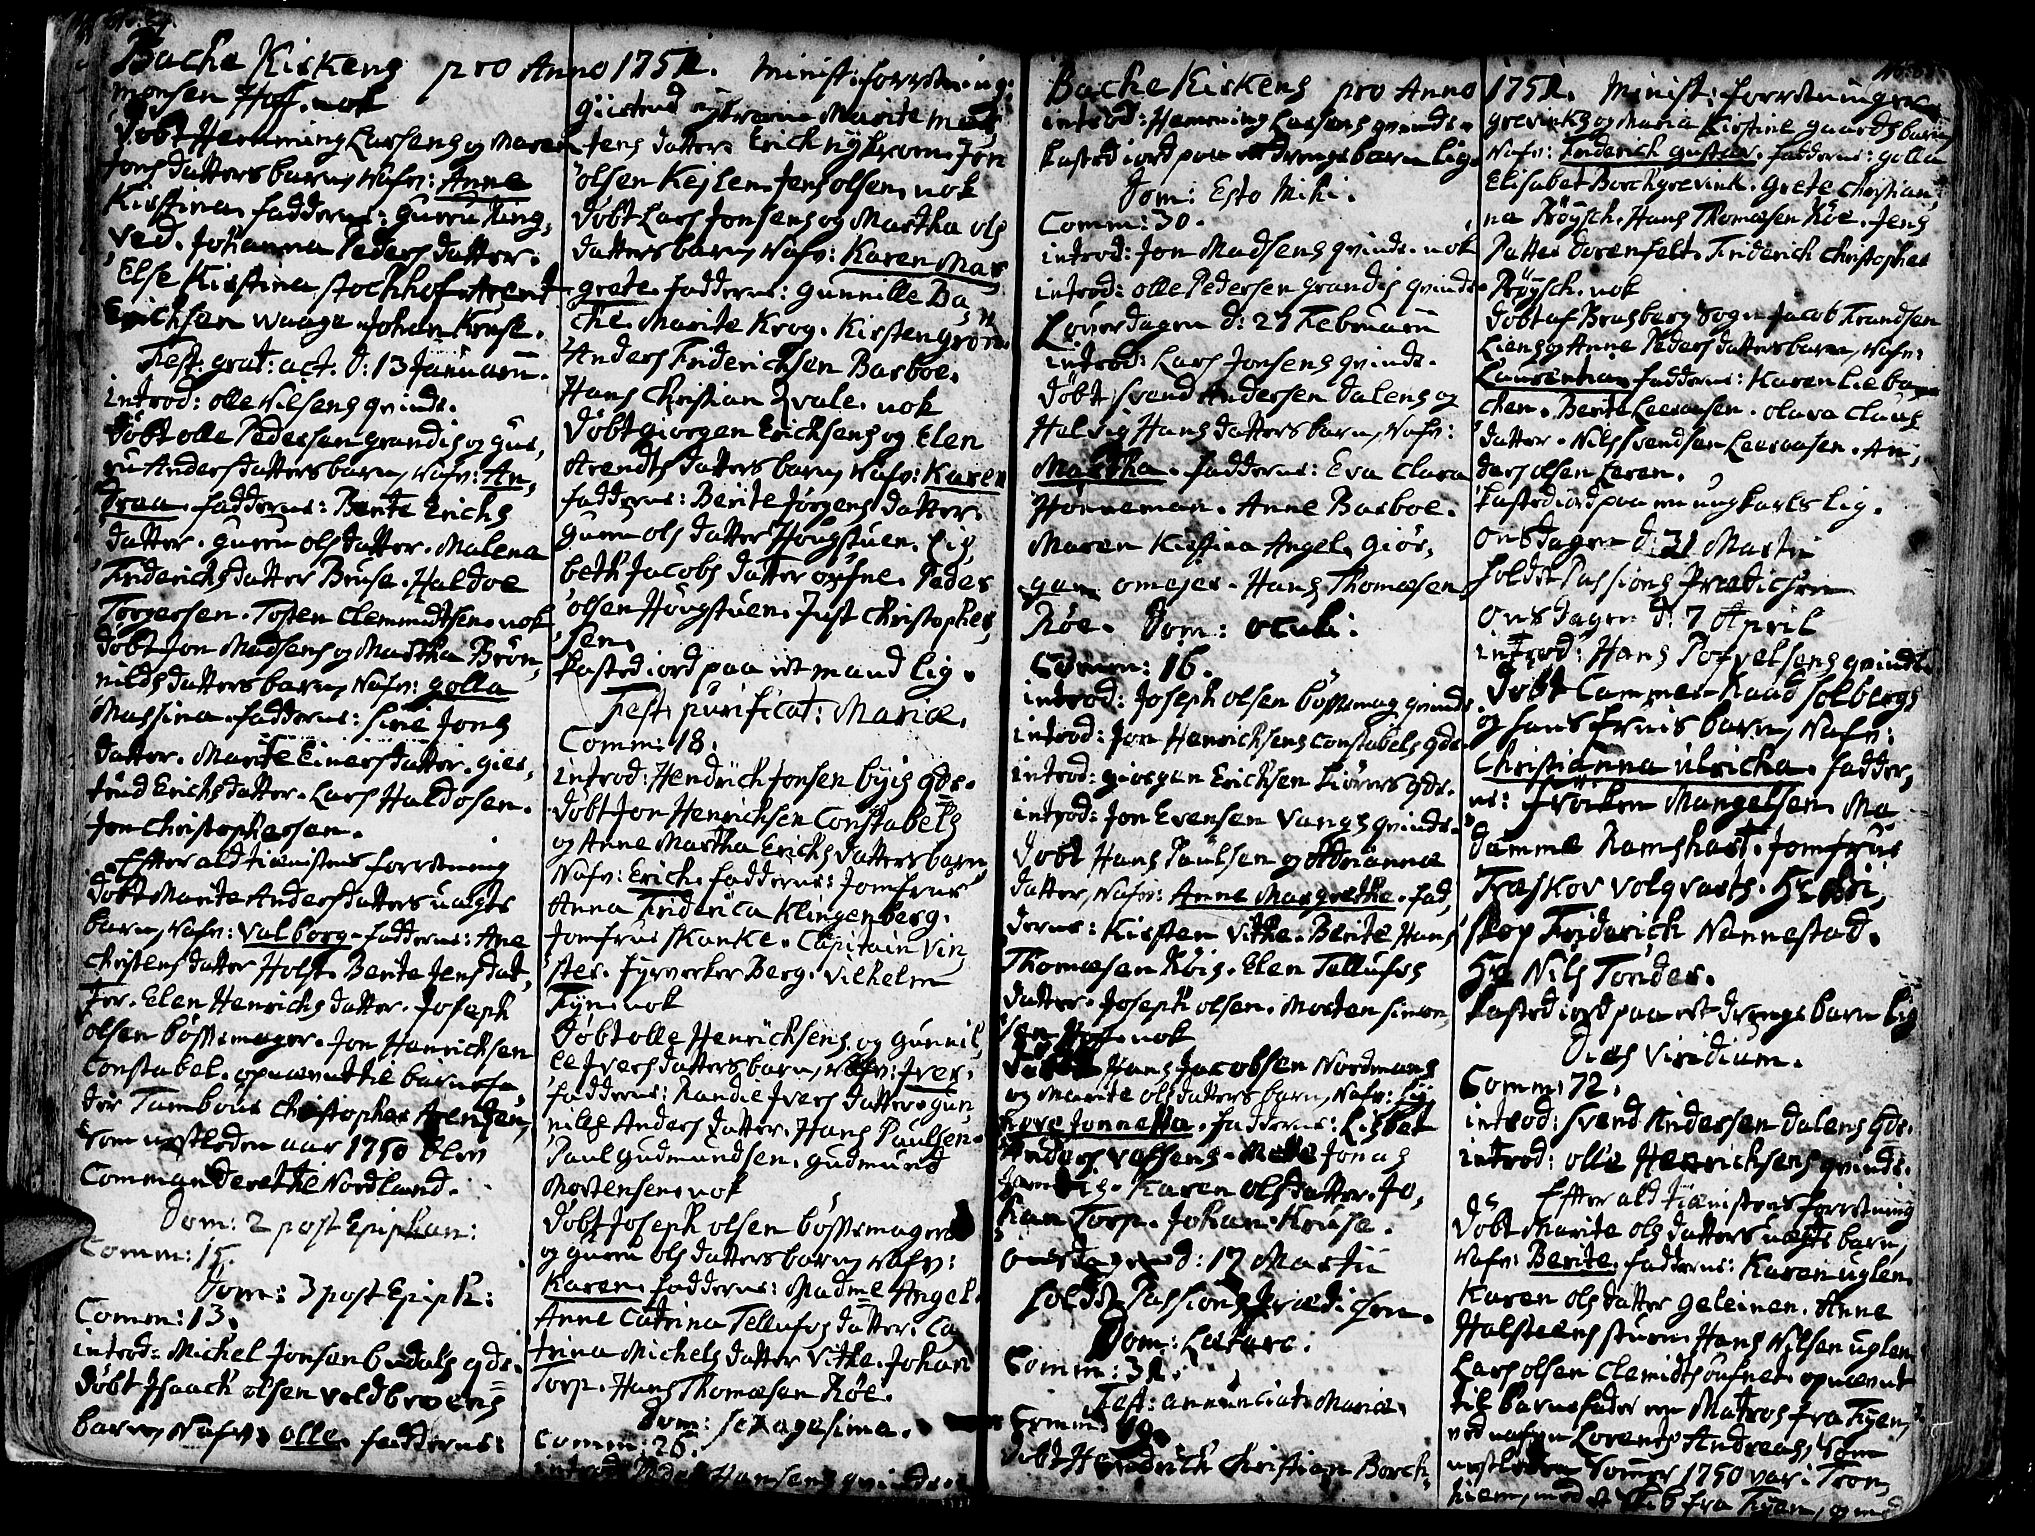 Bache Kirkens pro Anno 1751. Minist: forretning:
monsen Hoff. nok
Døbt Hemming Larsens og Maren
Jons datters barn, Nafn: Anne
Kirstina. fadderne: Guru Ring,
ved. Johanna Peders datter.
Else Kirstina Stockhof. Arent
Erichsen Waage. Johan Kruse.
Fest: grat: act. d: 13 Januarii.
introd: olle Nilsens qvinde.
Døbt olle Pedersen Grandis og Gu,
ru Anders datters barn, Nafn: An,
drea. fadderne: Berite Erichs
datter. Guru ols datter. Malena
Friderichs datter Bruse. Haldoe
Torgersen. Tosten Clemmidtsen. nok
Døbt Jon Madsens og Martha Brøn,
nilds datters barn, Nafn: Golla
Massina. fadderne: Sirie Jons
datter. Marite Einers datter. Gier,
trud Erichs datter. Lars Haldosen.
Jon Christophersen.
Effter ald tienistens forretning
Døbt Marite Anders datters uægte
barn, Nafn: Valborg. fadderne: Ane
Christens datter Holst. Berite Jens dat,
ter. Elen Henrichs datter. Joseph
olsen bøssemager. Jon Henrichsen
Constabel. opnævnt til barnefa
der Tambour Christopher Arentsen,
som nestleden aar 1750 blev
Commanderet til Nordland.
Dom: 2 post Epiphan:
Comm: 15.
Dom: 3 post Epiph:
Comm: 13.
introd: Michel Jonsen budals qds.
Døbt Isaach olsen Voldbroens
barn, Nafn: olle. fadderne:
Giertrud Nystrøm. Marite Mor,
tens datter. Erich Nystrøm. Jon
olsen Kejlen. Jens olsen. nok
Døbt Lars Jonsens og Martha ols
datters barn, Nafn: Karen Mar
grete. fadderne: Gunnille Ba,
che. Marite Krog. Kirsten Grøn.
Anders Friderichsen Barboe.
Hans Christian Qvale. nok
Døbt Giørgen Erichsens og Elen
Arendts datters barn, Nafn: Karen
fadderne: Berite Jørgens datter.
Guru ols datter Hougstuen. Lis,
beth Jacobs datter oysne. Peder
olsen Hougstuen. Just Christopher,
sen.
Kasted iord paa et mand lig.
Fest: purificat: Mariæ.
Comm: 18.
introd: Hendrich Jonsen byis qds.
Døbt Jon Henrichsen Constabels
og Anne Martha Erichs datters barn
Nafn: Erich. fadderne: Jomfrue
Anna Friderica Klingenberg.
Jomfrue Skanke. Capitain Vin,
ster. Fyrverker Berg. Vilhelm
Fyn. nok
Døbt olle Henrichsens og Gunnil,
le Ivers datters barn, Nafn: Iver.
fadderne: Randie Ivers datter. Gun
nild Anders datter. Hans Paulsen.
Paul Gudmundsen. Gudmund
Mortensen. nok
Døbt Joseph olsen bøssemagers
og Guru ols datters barn, Nafn:
Karen. fadderne: Madme Angel.
Anne Catrina Tellufs datter. Ca
trina Michels datter Vitke. Johan
Torp. Hans Thomasen Røe.
Dom: sexagesima.
Comm: 26.
introd: Peder Hansens qvinde.
Bache Kirkens pro Anno 1751. Minist: forretninger
introd: Hemming Larsens qvinde.
Kasted iord paa et drenge barn lig.
Dom: Esto Mihi.
Comm: 30.
introd: Jon Madsens qvinde. nok
introd: olle Pedersen Grandis qvinde.
Løverdagen d: 27 Februarii
introd: Lars Jonsens qvinde.
Døbt Svend Andersen Dalens og
Helvig Hans datters barn, Nafn:
Martha. fadderne: Eva Clara
Honneman. Anne Barboe.
Maren Kirstina Angel. Giør,
gen omejer. Hans Thomasen
Røe. Dom: oculi.
Comm: 16.
introd: Joseph olsen bøssemag qvinde
introd: Jon Henrichsens Constabels qds.
introd: Giørgen Erichsen Kiørers qds.
introd: Jon Evensen Vangs qvinde.
Døbt Hans Paulsen og Adrianna
datter, Nafn: Anne Margrethe. fad,
derne: Kirsten Vitke. Berite Hans
Thomæsen Røis. Elen Tellufs
datter. Joseph olsen. Morten Simon,
sen Hoff. nok
Døbt Hans Jacobsen Nordmans
og Marite ols datters barn, Nafn: Lis
Lore Jonnetta. fadderne: Lisbet
Anders Volsens. Mette Jonas
. Karen ols datter. Jo,
han Torp. Johan Kruse.
Onsdagen d: 17 Martii
holdt Passions Prædichen.
Dom: Lætare.
Comm: 31.
Fest: annunciat: Mariæ.
Comm: 19.
Døbt Hendrich Christian Borch,
grevinks og Maria Kirstine Gaards barn,
Nafn: Friderich Gustav. fadderne: Golla
Elisabet Borchgrevink. Grete Christian,
na Røysch. Hans Thomæsen Røe. Jens
Petter Dorenfelt. Friderich Christopher
Røysch. nok
Døbt af Brasberg Sogn Jacob Trondsen
Liens og Anne Peders datters barn, Nafn:
Laurentia. fadderne: Karen Lieba
chen. Berite Leeraasen. olava Claus
datter. Nils Svendsen Leeraasen. An,
ders olsen Leren.
Kasted iord paa en ungkarls lig.
Onsdagen d: 31 Martii
holdt Passions Prædichen
Onsdagen d: 7 April
introd: Hans Povelsens qvinde.
Døbt Cammer Raad Solbergs
og hans Fruis barn, Nafn:
Christianna Ulricha. fadder,
ne: Frøiken Mangelsen. Ma
damme Ramshart. Jomfrue
Træskov Volqvarts. Hr Bi,
skop Friderich Nannestad.
Hr Nils Tønder.
Kasted iord paa et drenge barn lig
Dies Viridium.
Comm: 72.
introd: Svend Andersen Dalens qds.
introd: olle Henrichsens qvinde.
Effter ald tienistens forretning
Døbt Marite ols datters uægte barn,
Nafn: Berite. fadderne: Karen Uglen.
Karen ols datter Geleinen. Anne
Halsteens stuen. Hans Nilsen Uglen.
Lars olsen Clemidtsoufnet. opnævnt
til barnefader en Matros fra Fyen,
ved nafn Lorents Andreas, som
nestleden Somer 1750 var i Tron,
hiem, med et Skib fra Fyen, og